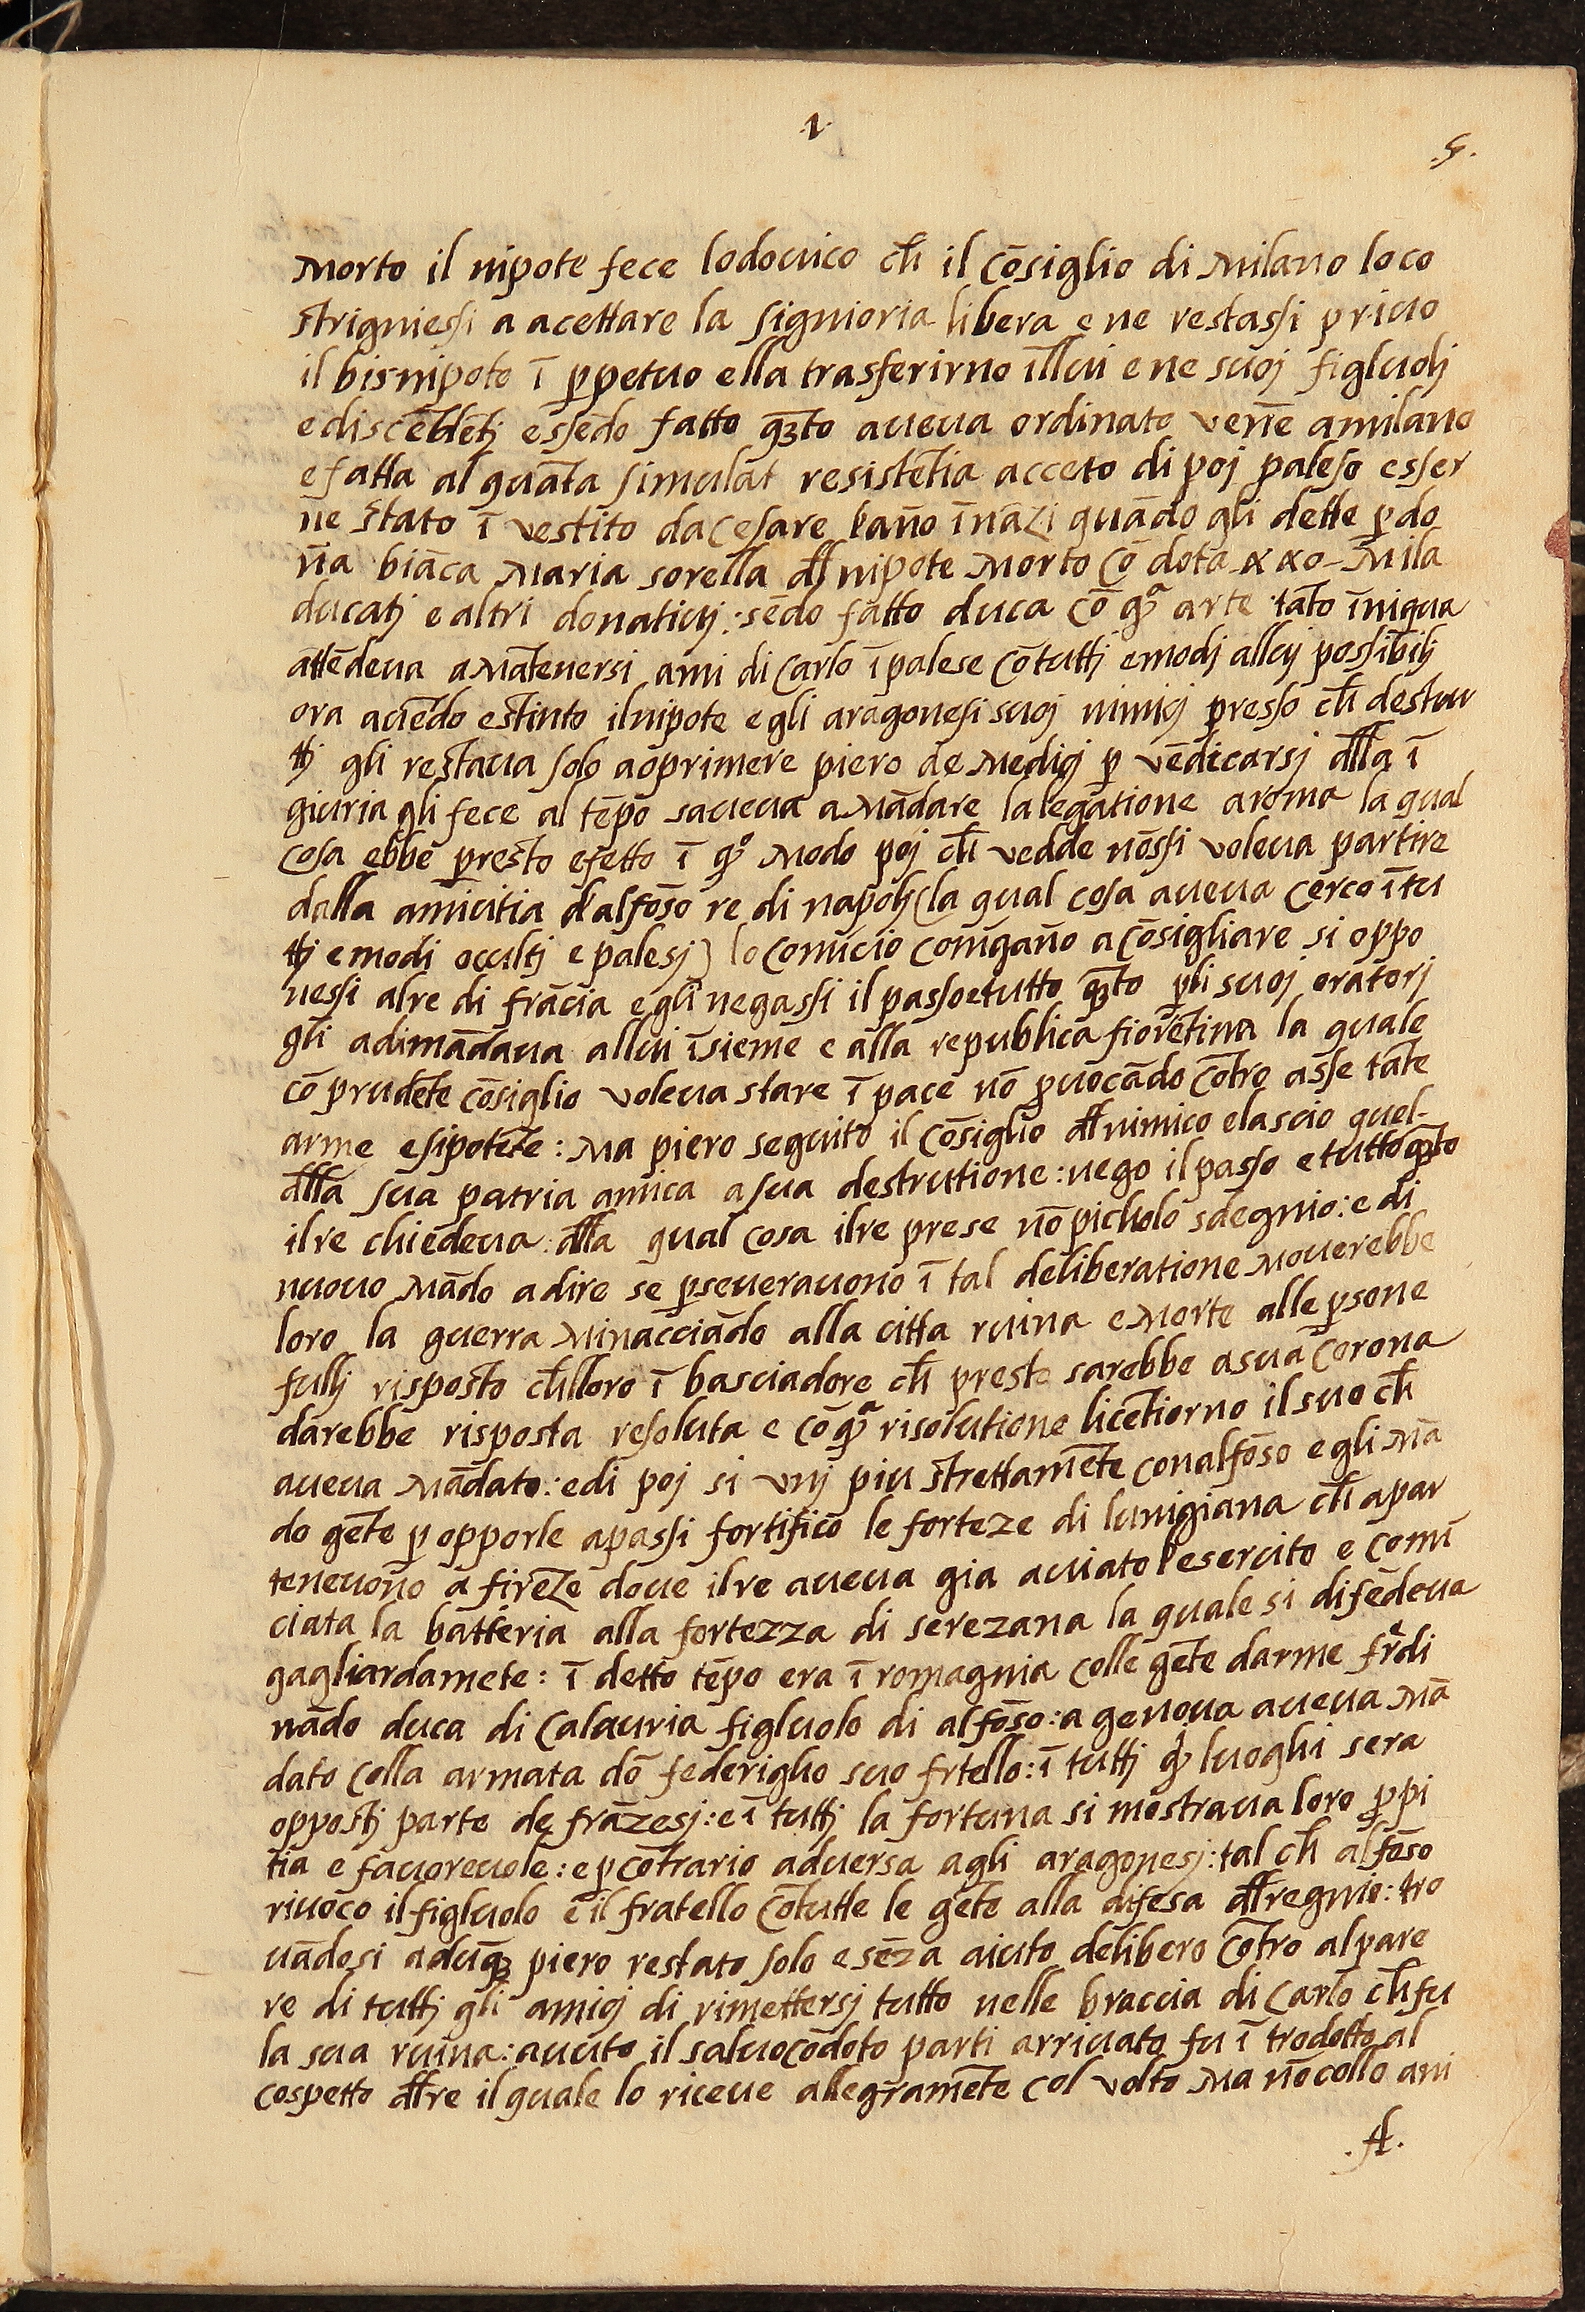 1
.5.
Morto il nipote fece lodouico ch̄ il cōsiglio di Milano loco
strigniessi a acettare la signioria libera e ne restassi priuo
il bisnipote ī ꝑpetuo ella trasferirno illui e ne suoj figluolj
e essēdo fatto qꝫto aueua ordinato venē amilano
e fatta al guāta simulat resistētia acceto di poj paleso esser
ne stato ī vestito da cesare lāno īnāzi quādo gli dette ꝑ do
n̄a biāca Maria sorella dl̄ nipote Morto cō dota Mila
ducatj e altri donatiuj: sēdo fatto duca cō qᵃ arte tāto īniqua
attēdeua a Mātenersi ami di Carlo ī palese cō tuttj e modj alluj possibilj
ora auēdo estinto il nipote e gli aragonesi suoj nimicj presso ch̄ destru
ttj gli restaua solo a oprimere piero de Medicj ꝑ vēdicarsj dll̄a ī
giuria gli fece al tēpo saueua a Mādare la legatione a roma la qual
cosa ebbe presto efetto ī qᵒ Modo poj ch̄ vedde nōssi voleua partire
dalla amicitia d'alfōso re di napolj (la qual cosa aueua cerco ī tu
ttj e modi occultj e palesj) lo comīcio con īgāno a cōsigliare si oppo
nessi al re di frācia e gli negassi il passo e tutto qꝫto ꝑ li suoj oratorj
gli adimādaua allui īsieme e alla republica fiorētina la quale
cō prudēte cōsiglio voleua stare ī pace nō ꝓuocādo cōtro asse tāte
arme e si potēte: Ma piero seguito il cōsiglio dl̄ nimico e lascio quel-
dll̄a sua patria amica a sua destrutione: nego il passo e tutto qꝫto
il re chiedeua: dll̄a qual cosa il re prese nō picholo sdegnio: e di
nuouo Mādo a dire se ꝑseuerauono ī tal deliberatione Mouerebbe
loro la guerra Minacciādo alla citta ruina e Morte alle ꝑsone
fullj risposto ch̄lloro ī basciadore ch̄ presto sarebbe a sua Corona
darebbe risposta resoluta e cō qᵃ risolutione licētiorno il suo ch̄
aueua Mādato: e di poj si vnj piu strettamēte con alfōso e gli Mā
do gēte ꝑ opporle a passi fortifico le forteze di lunigiana ch̄ apar
teneuono a firēze doue il re aueua gia auiato l'esercito e comī
ciata la batteria alla fortezza di serezana la quale si difēdeua
gagliardamēte: ī detto tēpo era ī romagnia colle gēte darme fr̄di
nādo duca di Calauria figluolo di alfōso: a genoua aueua Mā
dato colla armata dō federiglio suo frtello: ī tuttj qⁱ luoghi sera
oppostj parte de frāzesj: e ī tuttj la fortuna si mostraua loro ꝓpi
tia e fauoreuole: e ꝑ cōtrario aduersa agli aragonesj: tal ch̄ alfōso
riuoco il figluolo e il fratello cō tutte le gēte alla difesa dl̄ regnio: tro
uādosi adūqꝫ piero restato solo e sēza aiuto delibero cōtro al pare
re di tuttj gli amicj di rimettersj tutto nelle braccia di Carlo ch̄ fu
la sua ruina: auuto il saluocōdoto parti arriuato fu ī trodotto al
cospetto dl̄ re il quale lo riceue allegramēte col volto Ma nō collo ani
.A.